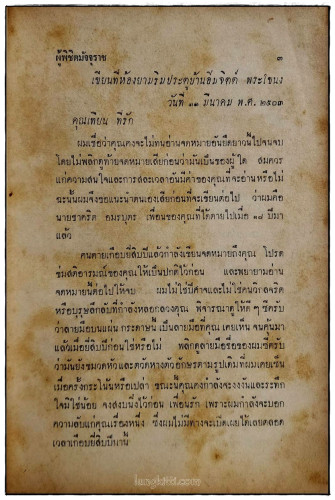 ผู้พิชิตมัจจุราช ๓
เขียนที่ห้องยามริมประตูบ้านอิ่มจิตต์ พระโขนง
วันที่ ๑๑ มีนาคม พ.ศ. ๒๕๐๓
คุณเทียน ที่รัก
ผมเชื่อว่าคุณคงจะไม่ทนอ่านจดหมายอันยืดยาวนี้ไปจนจบ
โดยไม่พลิกดูท้ายจดหมายเสียก่อนว่ามันเป็นของผู้ใด สมควร
แก่ความสนใจและการสละเวลาอันมีค่าของคุณที่จะอ่านหรือไม่
ฉะนั้นผมจึงขอแนะนำตนเองเสียก่อนที่จะเขียนต่อไป ว่าผมคือ
นายชาคริต อมรบุตร เพื่อนของคุณที่ได้ตายไปเมื่อ ๑๘ ปีมา
แล้ว
คนตายเกือบยี่สิบปีแล้วกำลังเขียนจดหมายถึงคุณ โปรด
ข่มสติอารมณ์ของคุณให้เป็นปกติไว้ก่อน และพยายามอ่าน
จดหมายนี้ต่อไปให้จบ ผมไม่ใช่ปีศาจและไม่ใช่คนวิกลจริต
หรือบุรุษลึกลับที่กำลังหลอกลวงคุณ พิจารณาดูให้ดี ๆ ซีครับ
ว่าลายมือบนแผ่นกระดาษนี้เป็นลายมือที่คุณเคยเห็นจนคุ้นมา
แล้วเมื่อยี่สิบปีก่อนใช่หรือไม่ พลิกดูลายมือชื่อของผมซีครับ
ว่ามันยังขมวดหัวและตวัดหางตัวอักษรตามรูปเดิมที่ผมเคยเซ็น
เมื่อครั้งกระโน้นหรือเปล่า ขณะนี้คุณคงกำลังงงงันและระทึก
ใจมิใช่น้อย จงสงบนิ่งไว้ก่อน เพื่อนรัก เพราะผมกำลังจะบอก
ความลับแก่คุณเรื่องหนึ่ง ซึ่งผมไม่มีทางจะเปิดเผยได้เลยตลอด
เวลาเกือบยี่สิบปีมานี้